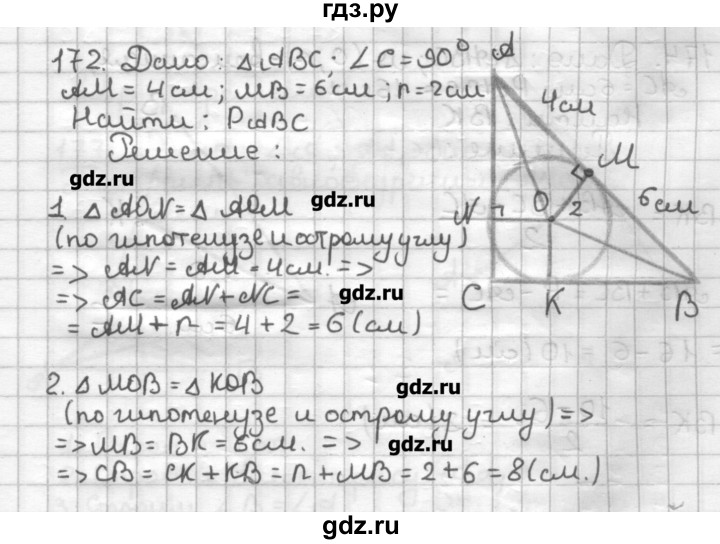 гдз.ру
172. Дано: △ABC; ∠C = 90°
AM = 4 см; MB = 6 см; r = 2 см
Найти: P△ABC
Решение:
A
4 см
M
6 см
N
O
2
C
K
B
gdz.ru
gdz.ru
1. △AON = △AOM
(по гипотенузе и острому углу)
=> AN = AM = 4 см. =>
gdz.ru
=> AC = AN + NC =
= AM + r = 4 + 2 = 6 (см)
2. △MOB = △KOB
gdz.ru
(по гипотенузе и острому углу) =>
=> MB = BK = 6 см. =>
gdz.ru
=> CB = CK + KB = r + MB = 2 + 6 = 8 (см.)
gdz.ru